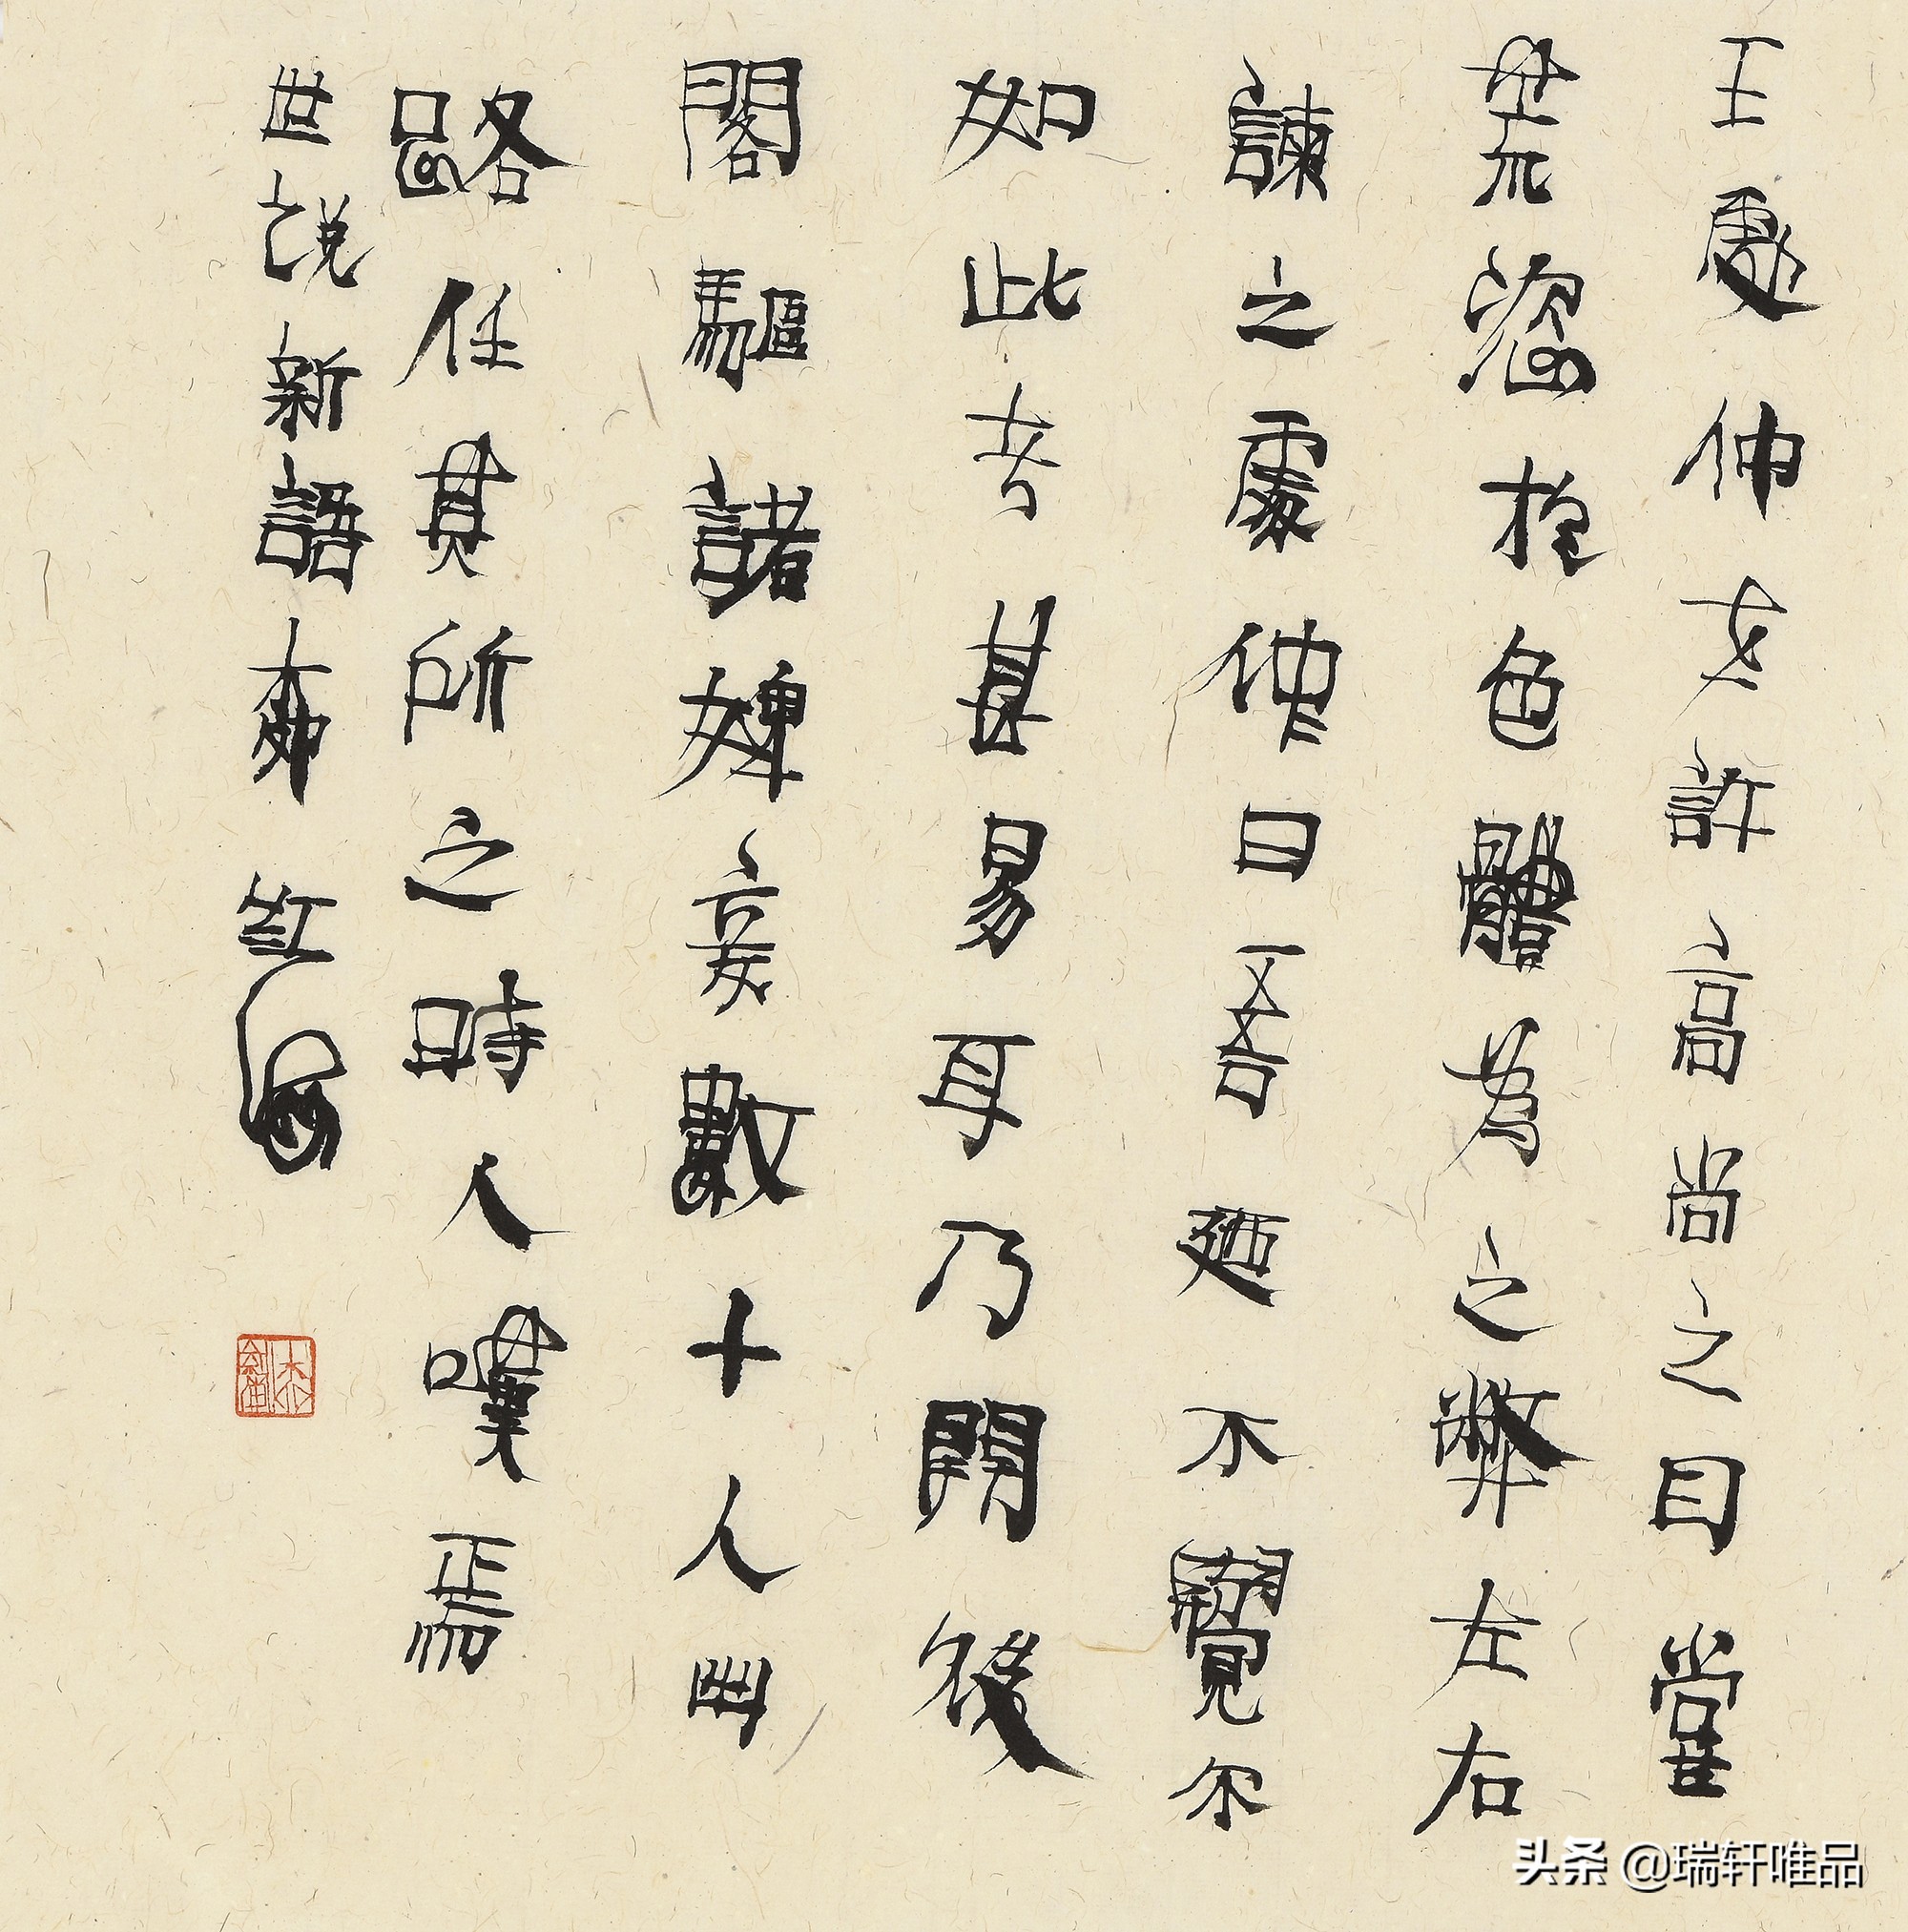 王處仲世許高尚之目嘗
荒恣於色體為之弊左右
諫之處仲曰吾廼不覺尔
如此者甚易耳乃開後
閣驅諸婢妾數十人出
路任其所之時人嘆焉
世説新語
头条 @瑞轩唯品